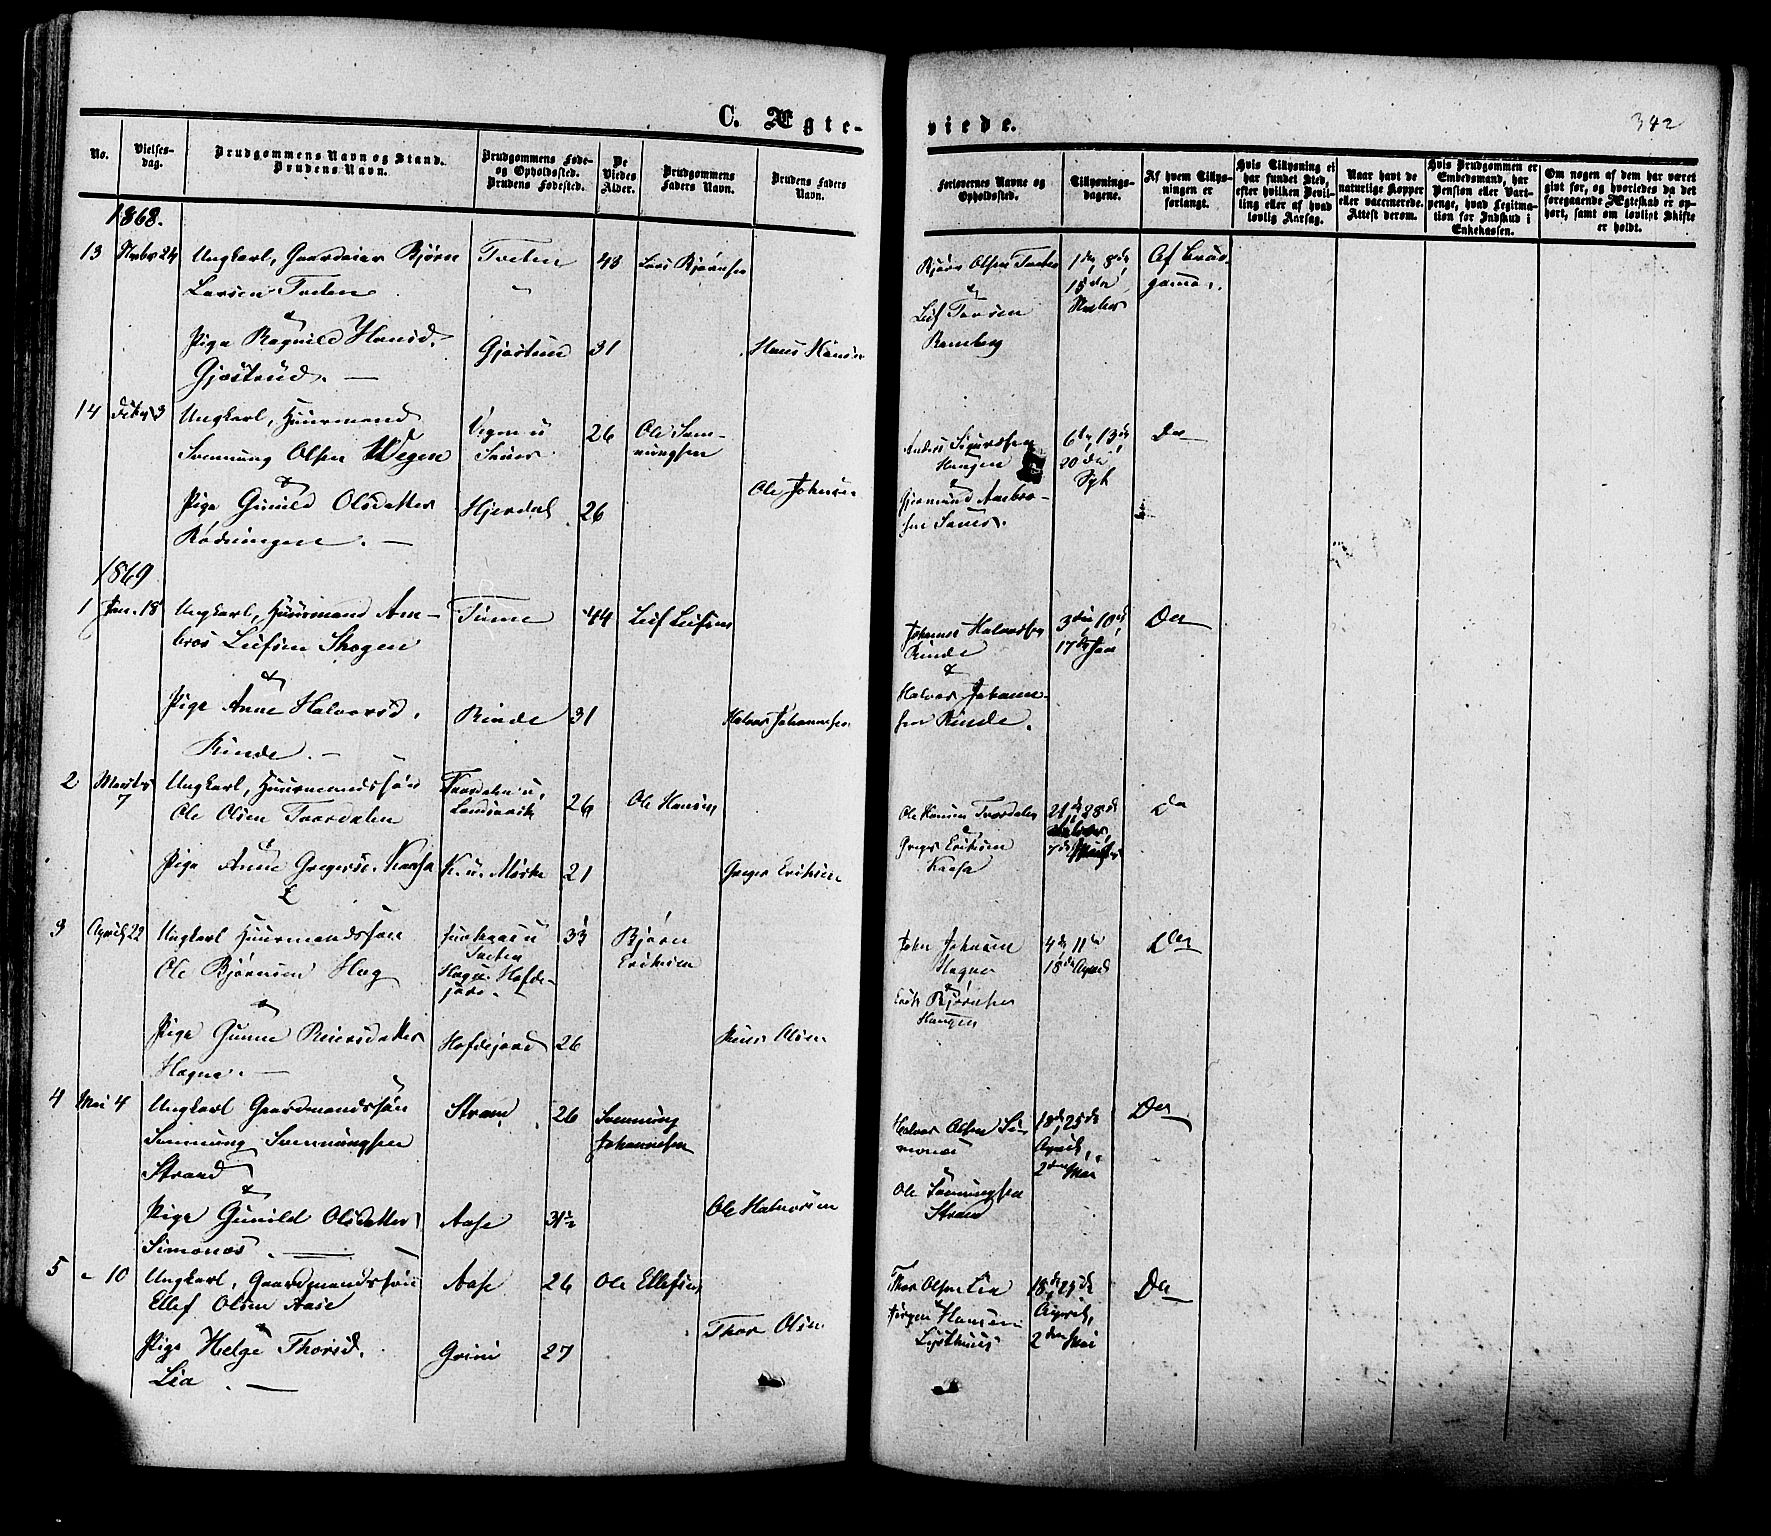 C. Ægte-
viede.
342
No.
Vielses-
dag.
Brudgommens Navn og Stand.
Brudens Navn.
Brudgommens Føde-
og Opholdssted.
Brudens Fødested.
De
Viedes
Alder.
Brudgommens
Faders Navn.
Brudens Faders
Navn.
Forlovernes Navne og
Opholdssted.
Tillysnings-
dagene.
Af hvem Tillys-
ningen er
forlangt.
Hvis Tillysning ei
har fundet Sted,
efter hvilken Bevil-
ling eller af hvad
lovlig Aarsag.
Naar havt de
naturlige Kopper
eller vaccinerede.
Attest derom.
Hvis Brudgommen er
Embedsmand, har
Pension eller Vart-
penge, hvad Legitima-
tion for Indskud i
Enkekassen.
Om nogen af dem har været
givt før, og hvorledes da det
foregaaende Ægteskab er op-
hørt, samt om lovligt Skifte
er holdt.
1868.
13 Novbr 24 Ungkarl, Gaardeier Bjørn Tveten 48 Lars Bjørnsen
Larsen Tveten
&
Pige Ragnild Hansd. Gjøstrud 31 Hans Hansen
Gjøstrud.
Bjørn Olsen Tveten 1de, 8de, Af Brud-
& 15de gommen.
Leif Novber
Ramberg
14 3 Ungkarl, Huusmand Vegen u 26 Ole Søn-
Sønnung Olsen Wegen Sauer nungsen
&
Pige Gunild Olsdatter Hjerdal 26 Ole Johnsen
Rødningen.
Anders Sigurdsen 6te, 13de Do
Haugen 20de
& Spt
Gjermund Ambro-
sen
1869
1 Jan. 18 Ungkarl, Huusmand Am- Tinne 44 Leif Leifsen
bros Leifsen Skogen
&
Pige Anne Halvorsd. Rinde 31 Halvor Johannesen
Rinde.
Johannes Halvorsen 3die, 10de Do
Rinde 17de Jan
&
Halvor Johanne-
sen Rinde.
2 Marts 7 Ungkarl, Huusmandssøn Tvordalen u. 26 Ole Hansen
Ole Olsen Tvordalen
&
Pige Anne Gregersd. Kaasa K. u. Mørke 21 Greger Eriksen
Ole Hansen Tvordalen 21de, 28de Do
& 7de Marts
Greger Eriksen
Kaasa
3 April 22 Ungkarl Huusmandssøn 33 Bjørn
Ole Bjørnsen Hag Tveten Eriksen
&
Pige Gunne Reiersdatter Hofdejord 26 Reier Olsen
Hagna.
John Johnsen 4de 11te Do
Hagna 18de April
&
Erik Bjørnsen
Haugen
4 Mai 4 Ungkarl Gaardmandssøn Strand 26 Sønnung
Sønnung Sønnungsen Johannesen
Strand
&
Pige Gunild Olsdatter Aase 31½ Ole Halvorsen
Simonæs.
Halvor Olsen Si- 18de, 25de Do
monæs April,
2den Mai
Ole Sønnungsen
Strand
5 " 10 Ungkarl, Gaardmandssøn Aase 26 Ole Ellefsen
Ellef Olsen Aase
&
Pige Helge Thorsd. Grini 27 Thor Olsen
Lia.
Thor Olsen Lia 18de, 25de Do
Jørgen Hansen April,
Lysthuus 2den Mai